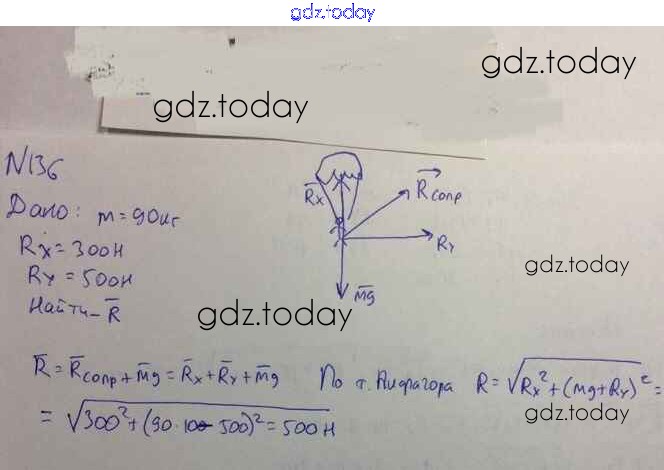 gdz.today
gdz.today
gdz.today
N136
Дано: m=90кг
Rx=300Н
Ry=500Н
Найти-R̅
R̅x
R⃗сопр
Ry
m̅g
gdz.today
gdz.today
R̅=R̅сопр+m̅g=R̅x+R̅y+m̅g По т. Пифагора R=√Rx²+(mg+Ry)²=
=√300²+(90·10-500)²=500Н
gdz.today